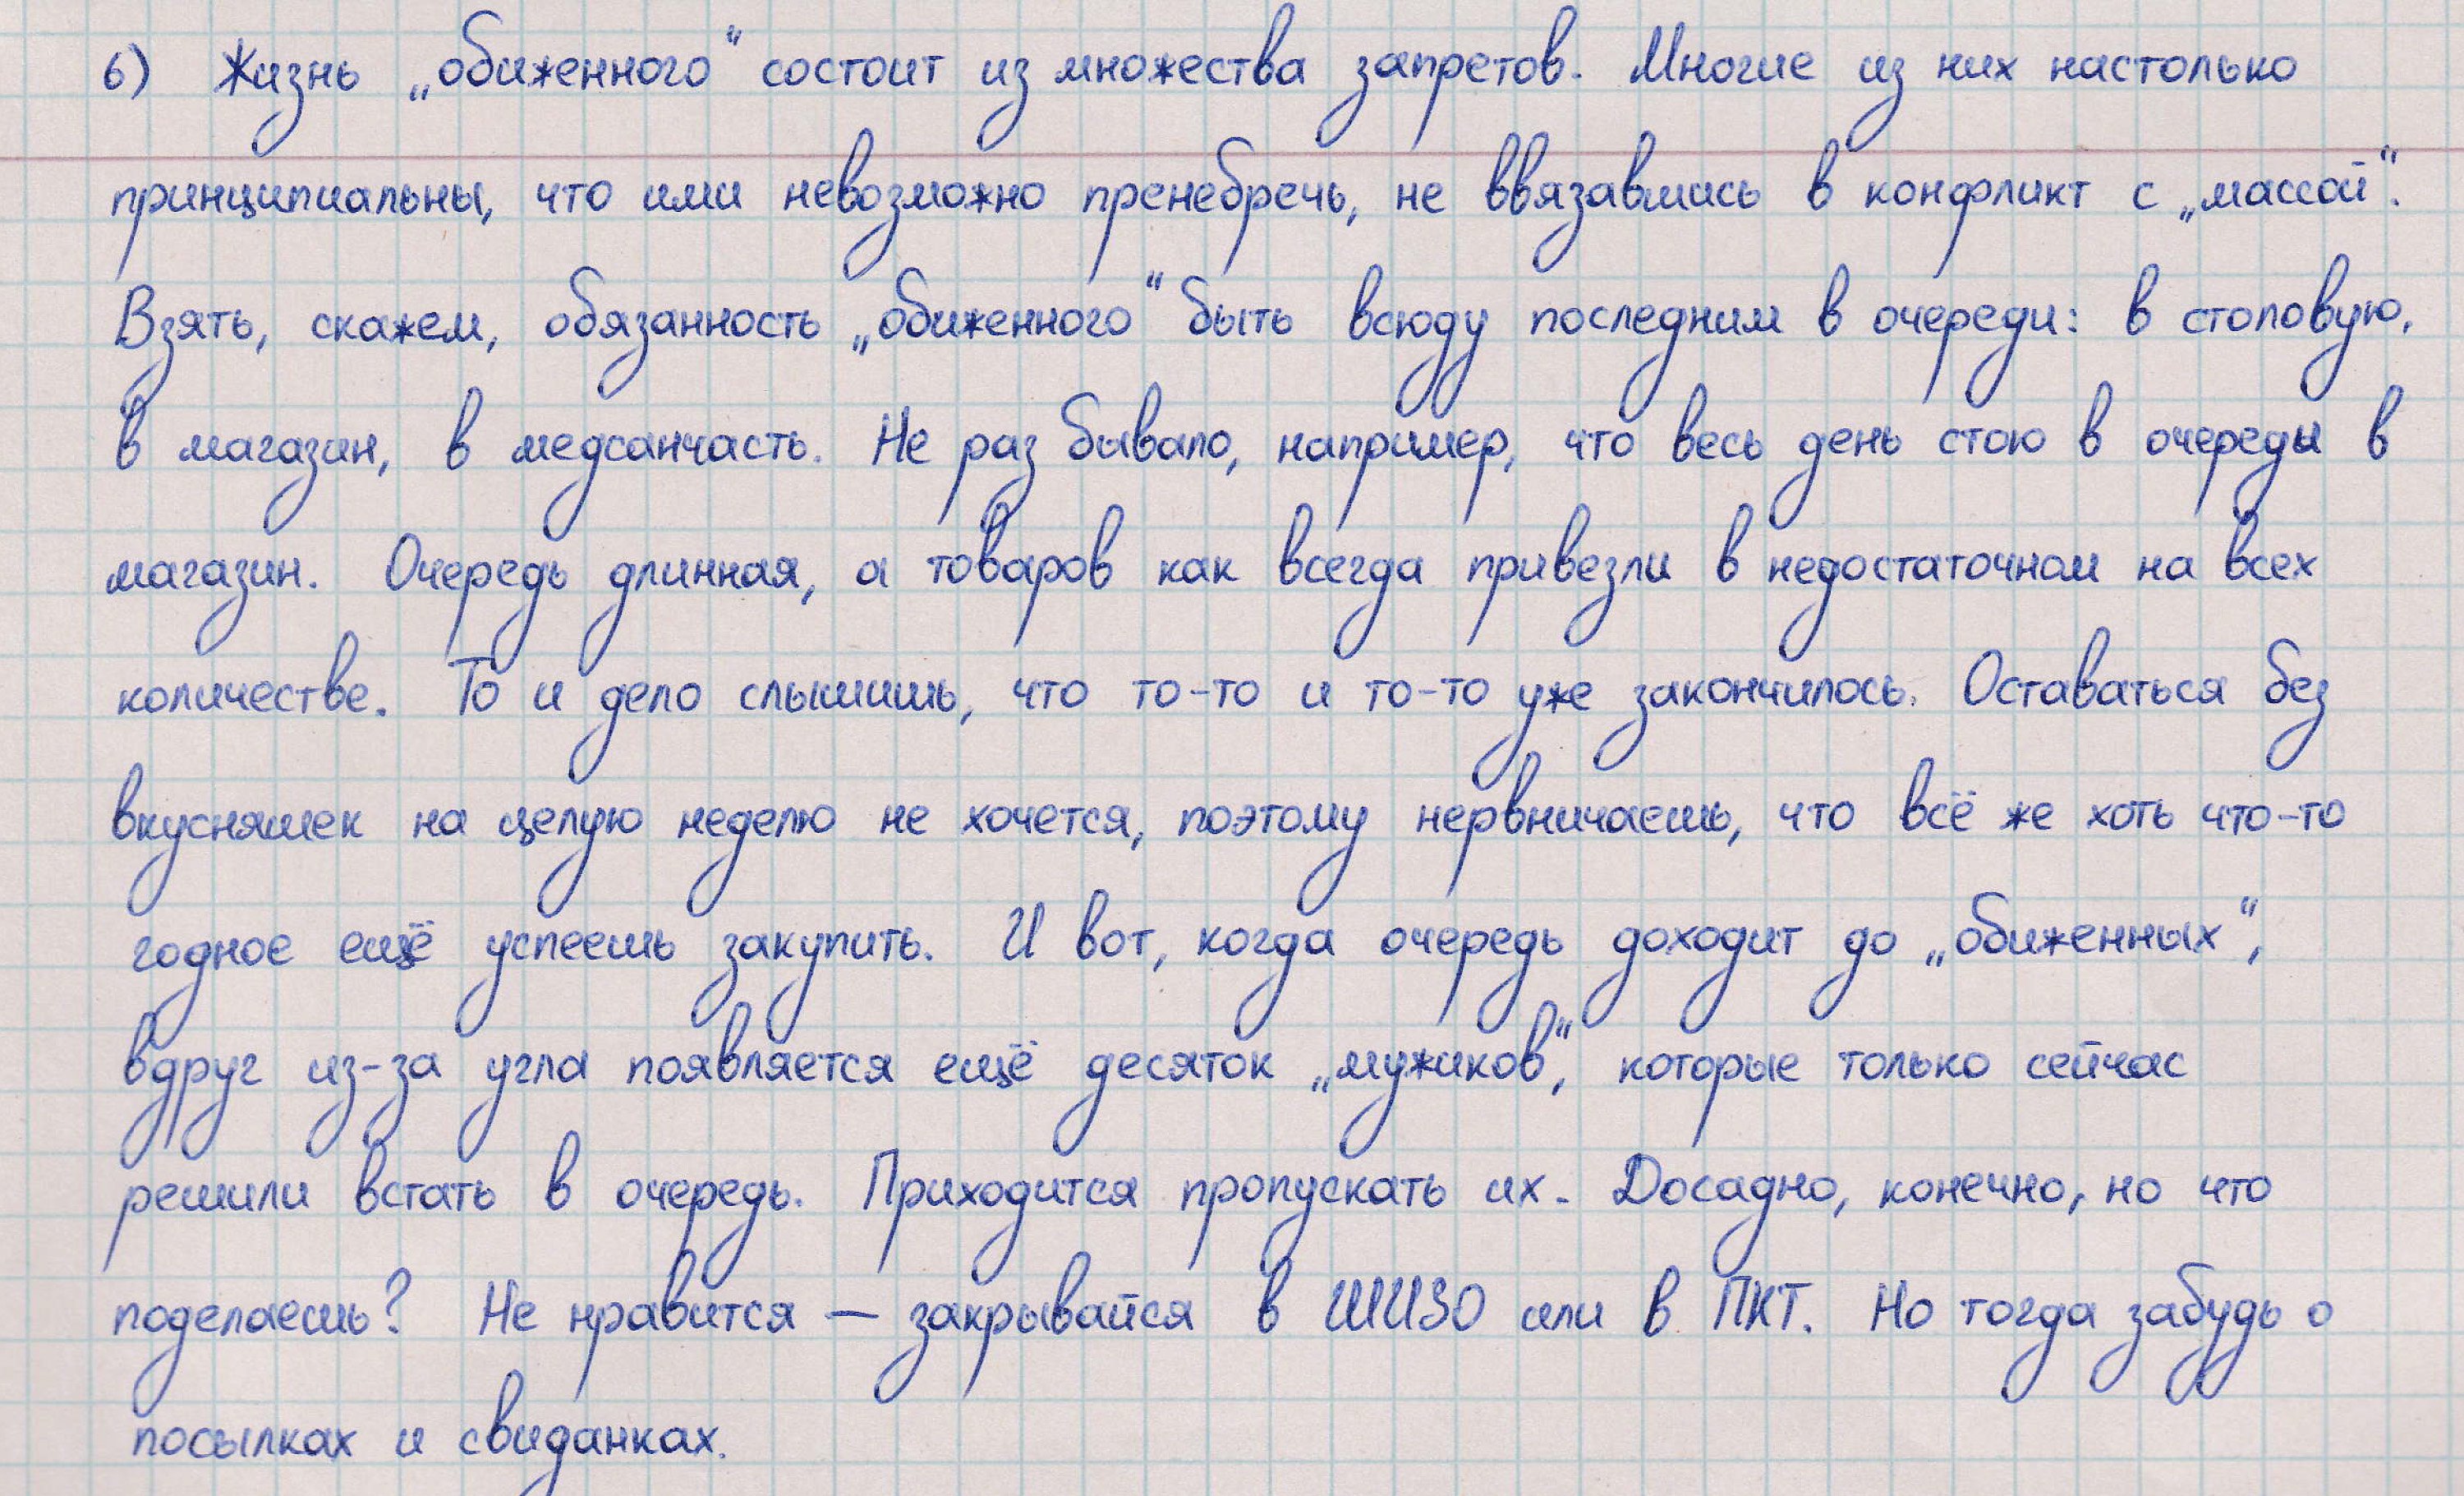 6) Жизнь „обиженного“ состоит из множества запретов. Многие из них настолько
принципиальны, что ими невозможно пренебречь, не ввязавшись в конфликт с „массой“.
Взять, скажем, обязанность „обиженного“ быть всюду последним в очереди: в столовую,
в магазин, в медсанчасть. Не раз бывало, например, что весь день стою в очереди в
магазин. Очередь длинная, а товаров как всегда привезли в недостаточном на всех
количестве. То и дело слышишь, что то-то и то-то уже закончилось. Оставаться без
вкусняшек на целую неделю не хочется, поэтому нервничаешь, что всё же хоть что-то
годное ещё успеешь закупить. И вот, когда очередь доходит до „обиженных“,
вдруг из-за угла появляется ещё десяток „мужиков“, которые только сейчас
решили встать в очередь. Приходится пропускать их. Досадно, конечно, но что
поделаешь? Не нравится — закрывайся в ШИЗО или в ПКТ. Но тогда забудь о
посылках и свиданках.